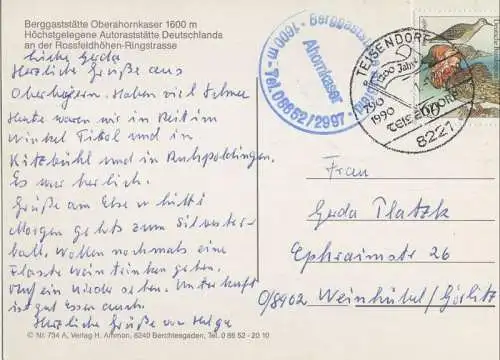 Berggaststätte Oberahornkaser 1600 m
Höchstgelegene Autoraststätte Deutschlands
an der Rossfeldhöhen-Ringstrasse
Liebe Gerda
Herzliche Grüße aus
Oberbayern. Haben viel Schnee
Heute waren wir in Reit im
Winkel Tirol und in
Kitzbühl und in Ruhpolding.
Es war herlich.
Grüße am
Morgen gehts zum Silvester-
ball, Wollen nochmals eine
Flasche Wein trinken gehen.
Auf ein Wieder sehen. Unterkunft
ist gut Essen auch.
Herzliche Grüße von Helga
© Nr. 734 A, Verlag H. Ammon, 8240 Berchtesgaden, Tel. 0 86 52 - 20 10
1600 m - Berggaststätte
Ahornkaser
Tel. 08652/2997
TEISENDORF
1200 Jahre
790
1990
TEISENDORF
8227
60
Frau
Gerda Platzk
Ephraimstr 26
O/8902 Weinhübel/Görlitz